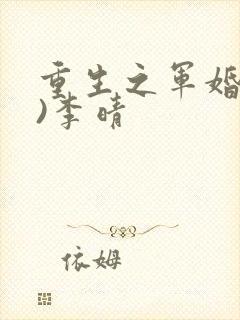 重生之军婚
)李晴
依姆